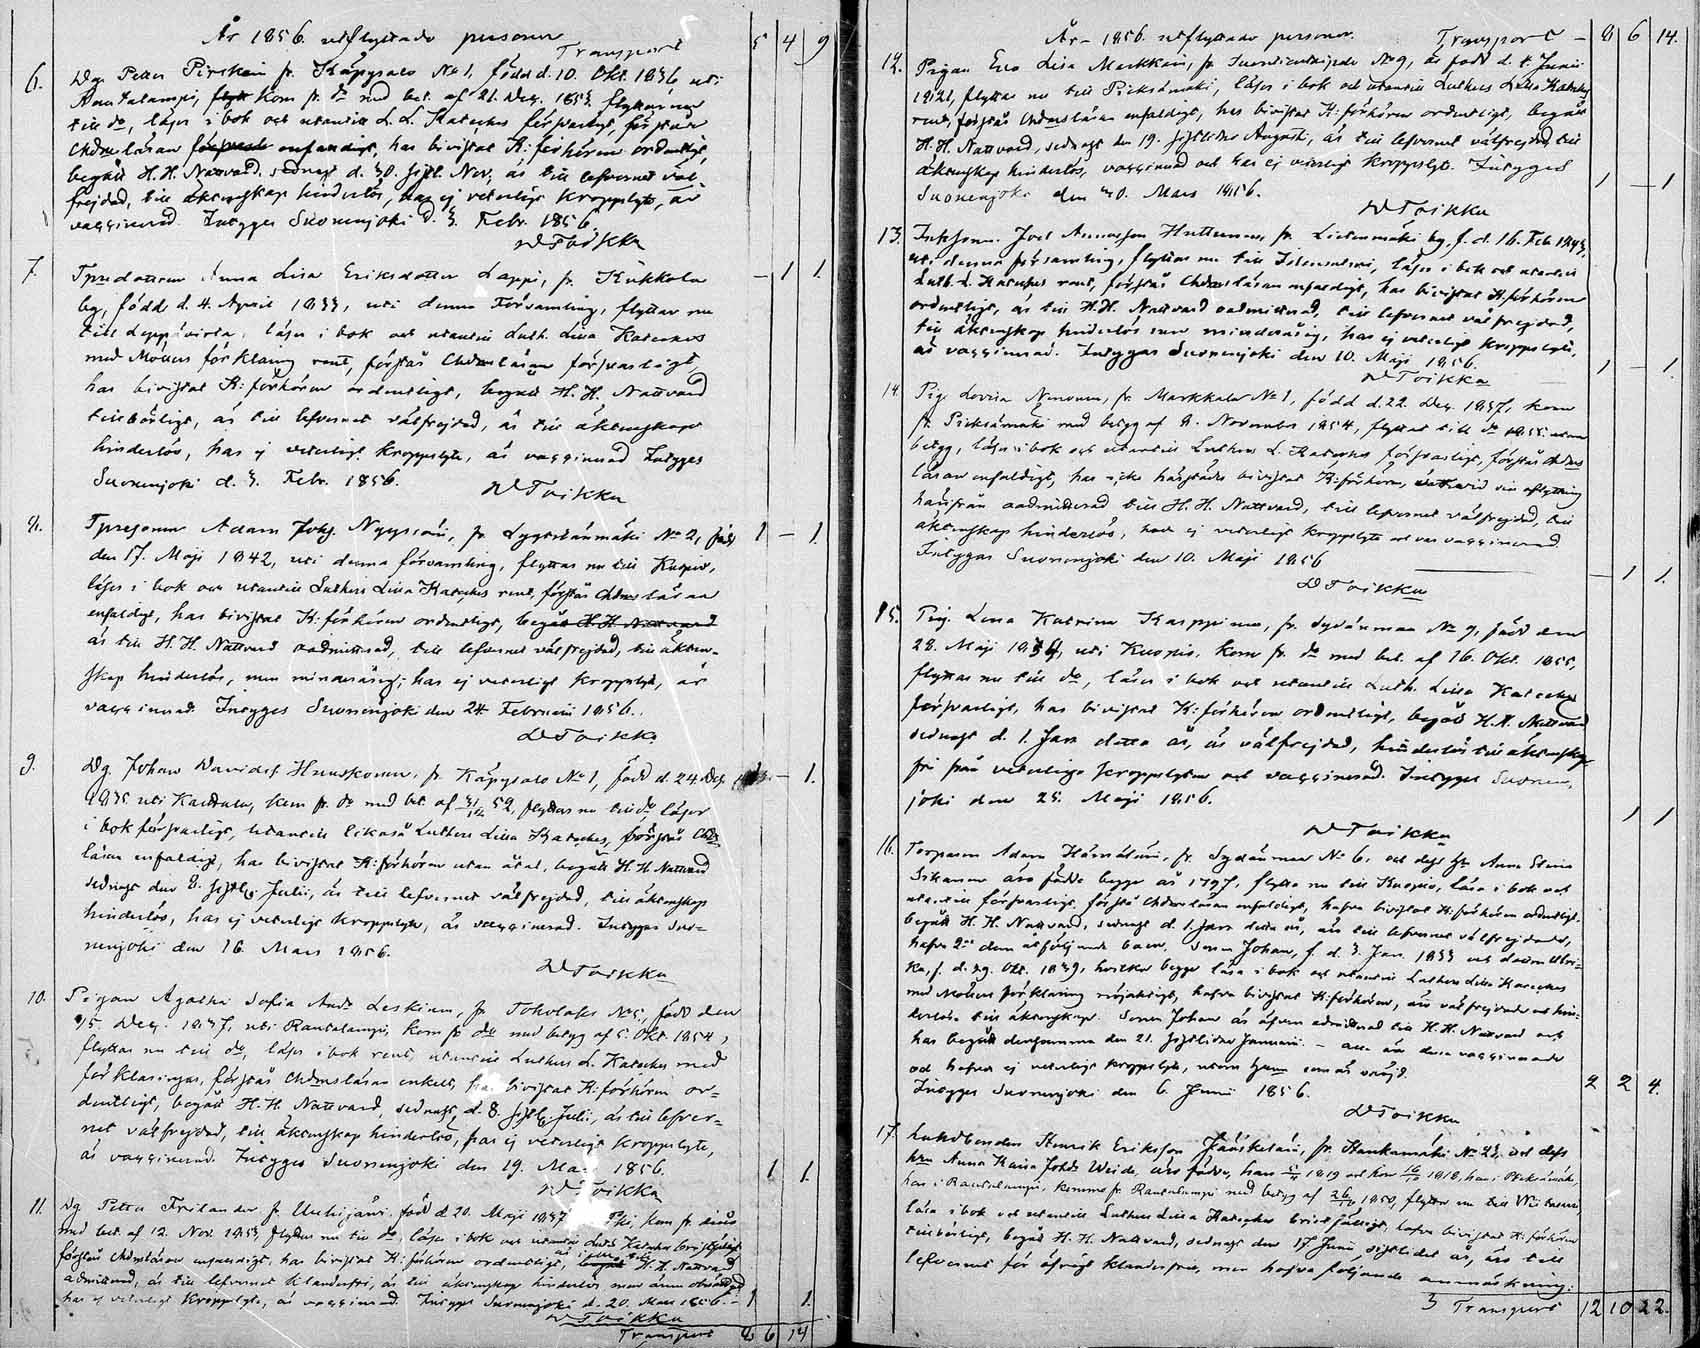 År 1856. utflyttade personer
Transport 5 4 9
6. Dg. Petter Pirskain fr. Käpysalo No 1, född d. 10. Okt. 1836 uti
Rautalampi, kom fr. do med bet. af 21. Dec. 1853. flyttar nu
till do, läser i bok och utantill L. L. Kateches förswarligt, förstår
Chdmsläran enfaldigt, har bivistat K:förhören ordentligt,
begått H. H. Nattvard, sednast d. 30. sistl. Nov., är till lefvernet väl-
frejdad, till äktenskap hinderlös, har ej veterligt kroppslyte, är
vaccinerad. Intygges Suonenjoki d. 3. Febr. 1856.
W Toikka
7. Tpredottren Anna Lisa Eriksdotter Lappi, fr. Kukkola — 1 1.
by, född d. 4. April 1833, uti denna Församling, flyttar nu
till Leppävirta, läser i bok och utantill Luth. Lilla Kateches
med Möllers förklaring rent, förstår Chdmsläran förswarligt,
har bivistat K:förhören ordentligt, begått H. H. Nattvard
tillbörligt, är till lefvernet välfrejdad, är till äktenskap
hinderlös, har ej veterligt kroppslyte, är vaccinerad. Intyges
Suonenjoki d. 3. Febr. 1856.
W Toikka
8. Tpresonen Adam Johs. Nyyssöin, fr. Lyytilänmäki No 2, född 1 — 1.
den 17. Maji 1842, uti denna församling, flyttar nu till Kuopio,
läser i bok och utantill Luthers Lilla Kateches rent, förstår Chdmsläran
enfaldigt, har bivistat K:förhören ordentligt, begått H. H. Nattvard
är till H. H. Nattvard oadmitterad, till lefvernet välfrejdad, till äkten-
skap hinderlös, men minderårig, har ej veterligt kroppslyte, är
vaccinerad. Intyges Suonenjoki den 24. Februarii 1856.
W Toikka
9. Dg. Johan Davidss. Huuskonen, fr. Käpysalo No 1, född d. 24. Dec. — 1.
1835 uti Karttula, kom fr. do med bet. af 52, flyttar nu till do, läser
i bok förswarligt, utantill likaså Luthers Lilla Kateches, förstår Chdms-
läran enfaldigt, har bivistat K:förhören utan åtal, begått H. H. Nattvard
sednast den 8. sistl. Julii, är till lefvernet välfrejdad, till äktenskap
hinderlös, har ej veterligt kroppslyte, är vaccinerad. Intyges Suo-
nenjoki den 16. Mars 1856.
W Toikka
10. Pigan Agatha Sofia And. Leskinen, fr. Toholax No 5, född den
15. Dec. 1837, uti Rautalampi, kom fr. do med betyg af 5. Okt. 1854,
flyttar nu till do, läser i bok rent, utantill Luthers L. Kateches med
förklaringar, förstår Chdmsläran enkelt, har bivistat K:förhören or-
dentligt, begått H. H. Nattvard, sednast d. 8. sistl. Julii, är till lefver-
net välfrejdad, till äktenskap hinderlös, har ej veterligt kroppslyte,
är vaccinerad. Intyges Suonenjoki den 19. Mars 1856. 1 1.
W Toikka
11. Dg. Petter Frilander fr. född d 20. Maji 1837 kom fr.
med bet. af 12. Nov. 1853, flyttar nu till do, läser i bok och utantill Luth. Kateches
förstår Chdmsläran enfaldigt, har bivistat K:förhören ordentligt, begått H. H. Nattvard
admitterad, är till lefvernet klanderfri, är till äktenskap hinderlös
har ej veterligt kroppslyte, är vaccinerad. Intyges Suonenjoki d. 20. Mars 1856. 1 1.
W Toikka
Transport 8 6 14
År 1856. utflyttade personer. Transport — 8 6 14.
12. Pigan Eva Lisa Markkain, fr. No 9, är född d. Junii
1821, flyttar nu till Pieksämäki, läser i bok och utantill Luthers Lilla Kateches
rent, förstår Chdmsläran enfaldigt, har bivistat K:förhören ordentligt, begått
H. H. Nattvard, sednast den 19. sistlidne Augusti, är till lefvernet välfrejdad, till
äktenskap hinderlös, vaccinerad och har ej veterligt kroppslyte. Intygges
Suonenjoki den 30. Mars 1856. 1 — 1
W Toikka
13. Joel Huttunen, fr. Lietenmäki by, f. d. 16. Feb. 1843,
uti denna församling, flyttar nu till läser i bok och utantill
Luth. L. Kateches rent, förstår Chdmsläran enfaldigt, har bivistat K:förhören
ordentligt, är till H. H. Nattvard oadmitterad, till lefvernet välfrejdad,
till äktenskap hinderlös men minderårig, har ej veterligt kroppslyte,
är vaccinerad. Intygges Suonenjoki den 10. Maji 1856.
W Toikka 1 — 1.
14. Pig. Lovisa Nenonen, fr. Markkala No 1, född d. 22. Dec. 1837, kom
fr. Pieksämäki med betyg af 8. November 1854, flyttat till do 1855. utan
betyg, läser i bok och utantill Luthers L. Kateches förswarligt, förstår Chdms
läran enfaldigt, har icke härstädes bivistat K:förhören, vid sin afflyttning
härifrån oadmitterad till H. H. Nattvard, till lefvernet välfrejdad, till
äktenskap hinderlös, hade ej veterligt kroppslyte och var vaccinerad.
Intygges Suonenjoki den 10. Maji 1856
W Toikka — 1 1.
15. Pig. Lena Katrina Karppinen, fr. Sydänmaa No 9, född den
28. Maji 1834, uti Kuopio, kom fr. do med bet. af 16. Okt. 1855,
flyttar nu till do, läser i bok och utantill Luth. Lilla Kateches
förswarligt, har bivistat K:förhören ordentligt, begått H. H. Nattvard
sednast d. 1. Jan. detta år, är välfrejdad, hinderlös till äktenskap
fri från veterliga kroppslyten och vaccinerad. Intyges Suonen-
joki den 25. Maji 1856.
W Toikka 1 1
16. Torparen Adam Hämäläin, fr. Sydänmaa No 6. och dess Hu Anna Stina
Sikanen äro födde begge år 1797, flytta nu till Kuopio, läsa i bok och
utantill förswarligt, förstå Chdmsläran enfaldigt, hafva bivistat K:förhören ordentligt,
begått H. H. Nattvard, sednast d. 1. Jan. detta år, äro till lefvernet välfrejdade,
hafva 2ne dem åtföljande barn, sonen Johan, f. d. 3. Jan. 1833 och dottren Ulri-
ka, f. d. 29. Okt. 1839, hvilka begge läsa i bok och utantill Luthers Lilla Kateches
med Möllers förklaring nöjaktigt, hafva bivistat K:förhören, äro välfrejdade och hin-
derlösa till äktenskap. Sonen Johan är äfven admitterad till H. H. Nattvard och
har begått densamma den 21. sistlidne Januarii. — alla äro desse vaccinerade
och hafva ej veterligt kroppslyte,
Intygges Suonenjoki den 6. Junii 1856. 2 2 4.
W Toikka
17. Landbonden Henrik Eriksson Jääskeläin, fr. Hankamäki No 23, och dess
hu Anna Kaisa Johsdr Weide, äro födde, han 1819 och hon 1818, han i Pieksämäki,
hon i Rautalampi, komne fr. Rautalampi med betyg af 1850, flytta nu till
läsa i bok och utantill Luthers Lilla Kateches hafva bivistat K:förhören
tillbörligt, begått H. H. Nattvard, sednast den 17 Junii sistlidet år, äro till
lefvernet för öfrigt klanderfria, men hafva följande anmärkning:
Transport 12 10 22.